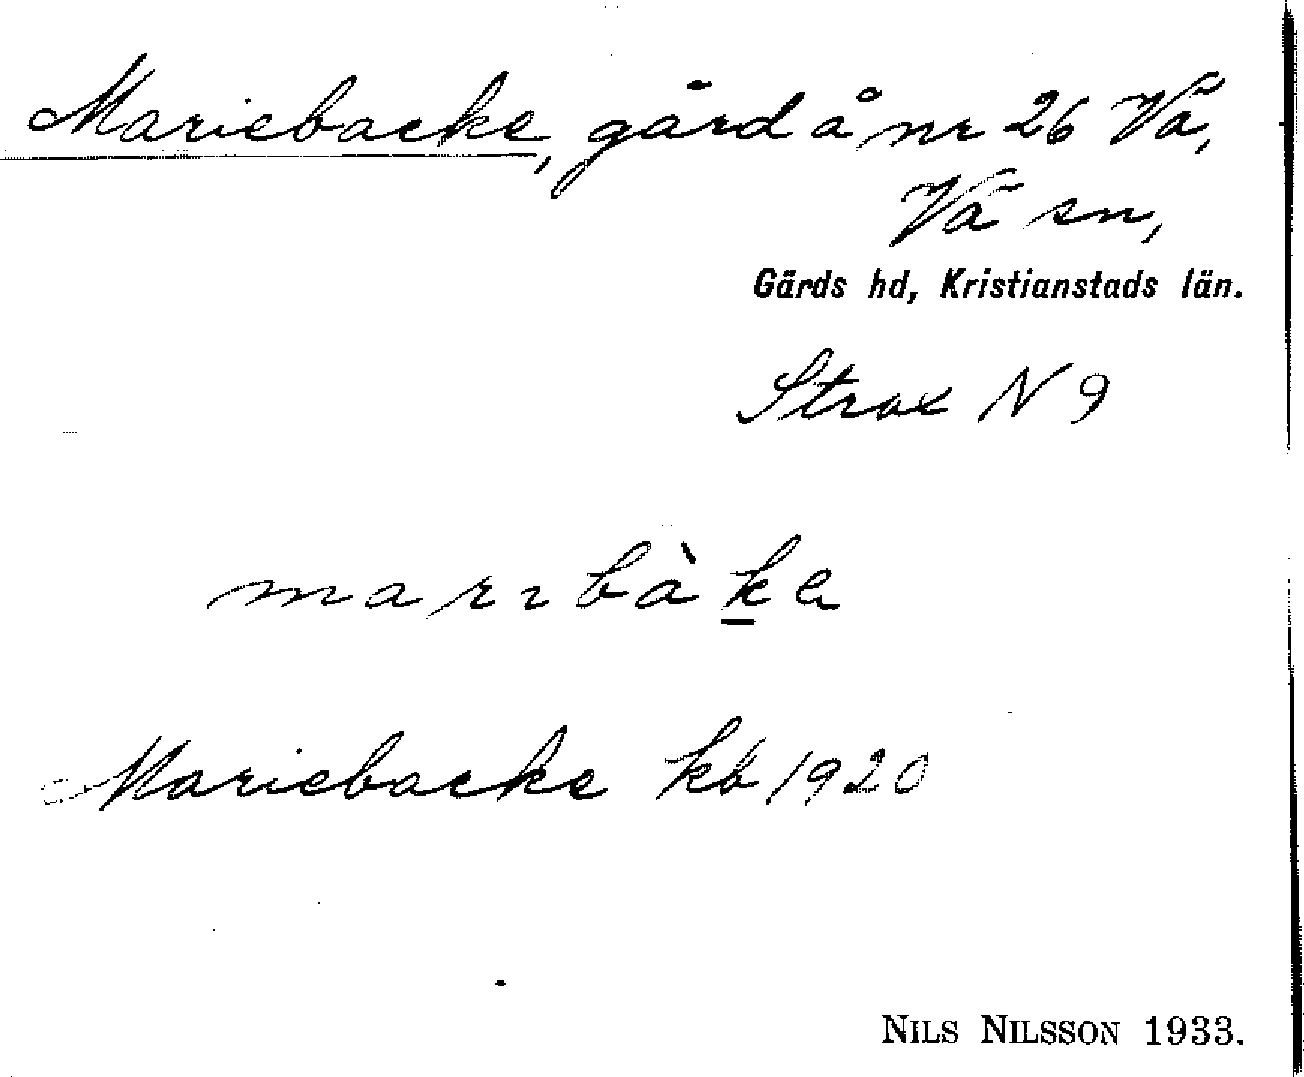 Mariebacke, gård å nr 26 Vä,
Vä sn,
Gärds hd, Kristianstads län.
Strax N 9
marɩbàkа
Mariebacke kb 1920
NILS NILSSON 1933.